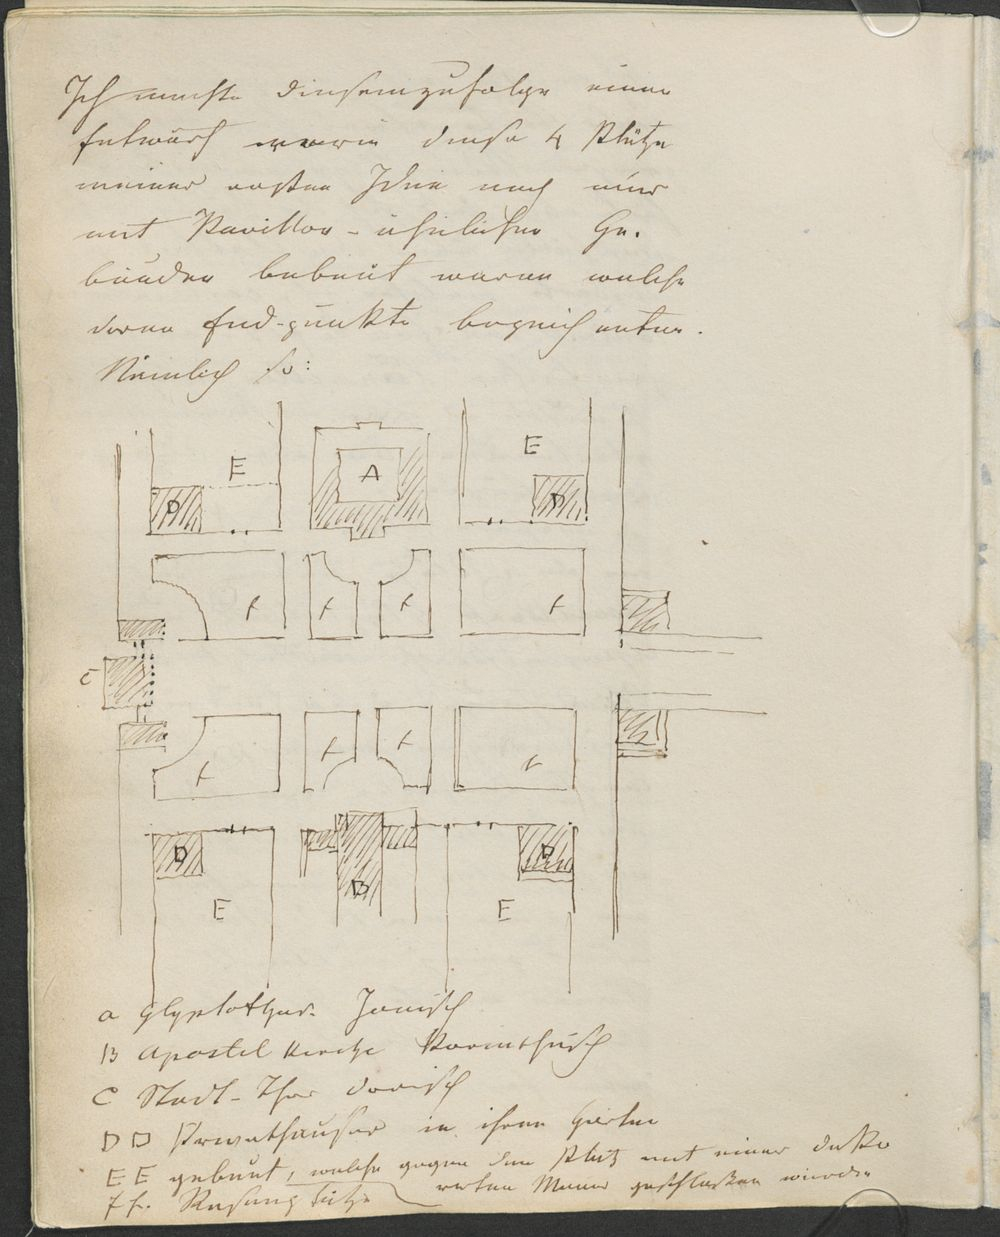 Ich machte diesemzufolge einen
Entwurf worin diese 4 Plätze
meiner ersten Idee nach nur
mit Pavillon-ähnlichen Ge-
bäuden bebaut waren welche
deren End-punkte bezeichneten.
Nämlich so:
E A E
D D
f f f f
C
f f f f
D B D
E E
a Glypthothek. Jonisch
B Apostel Kirche Korinthisch
C Stadt-Thor dorisch
D D Privathäuser in ihren Gärten
E E gebaut, welche gegen den Platz mit einer deko
rirten Mauer geschlossen wurden
f f. Rasenplätze